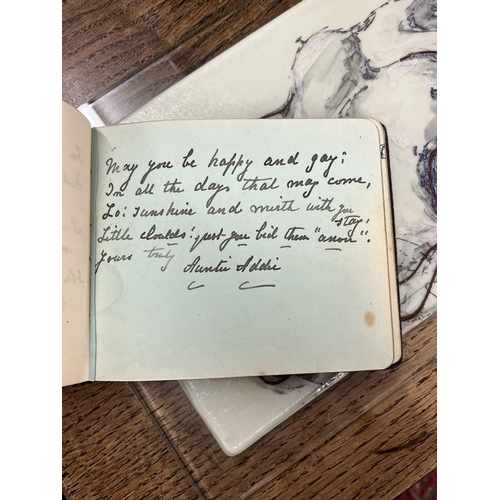 "May you be happy and gay;
In all the days that may come,
Lo! sunshine and mirth with you stay;
Little clouds! just you bid them "anon".
Yours truly
Auntie Addie